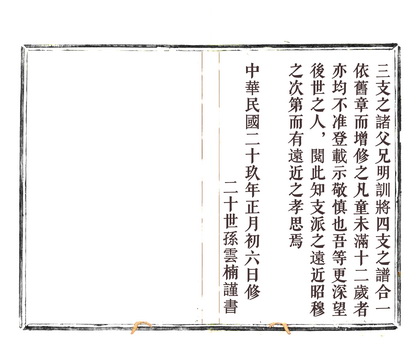 三支之諸父兄明訓將四支之譜合一
依舊章而增修之凡童未滿十二歲者
亦均不准登載示敬慎也吾等更深望
後世之人，閱此知支派之遠近昭穆
之次第而有遠近之孝思焉
中華民國二十玖年正月初六日修
二十世孫雲楠謹書